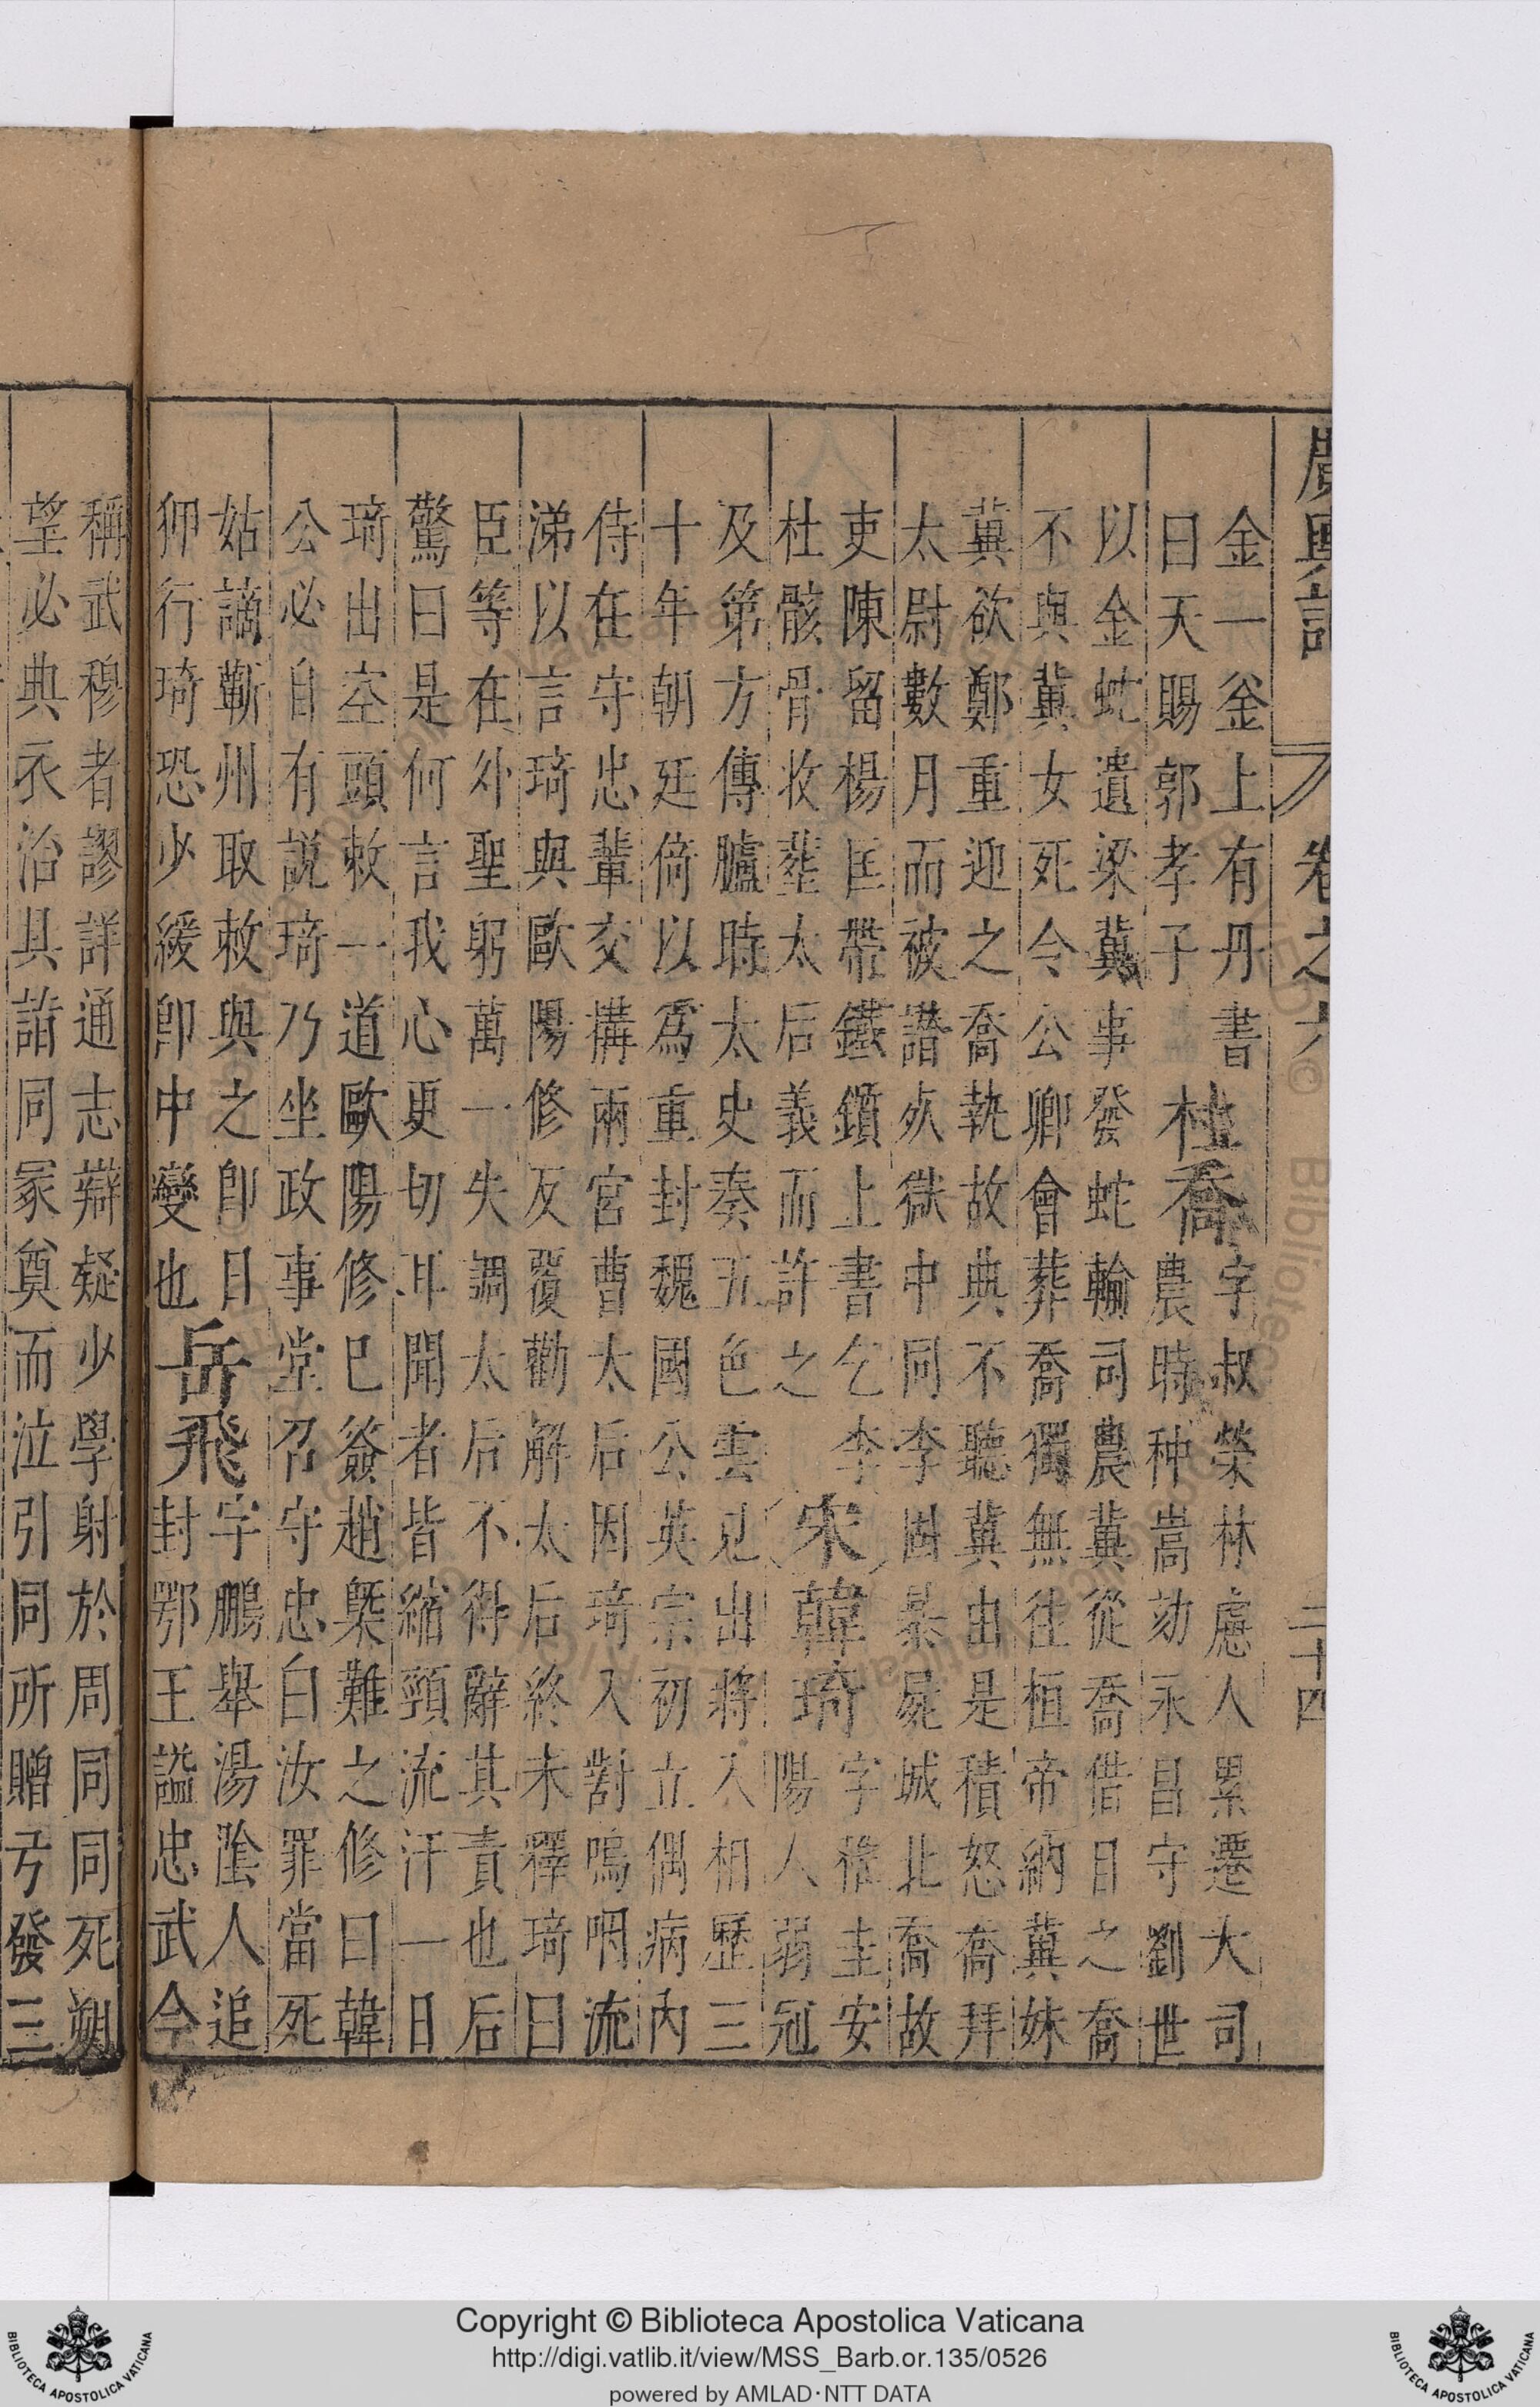 廣輿記 卷之六 二十四
金一釜上有丹書
曰天賜郭孝子
杜喬
字叔榮林慮人累遷大司
農時种嵩劾永昌守劉世
以金蛇遺梁冀事發蛇輸司農冀從喬借目之喬
不與冀女死令公卿會葬喬獨無往桓帝納冀妹
冀欲鄭重迎之喬執故典不聽冀由是積怒喬拜
太尉數月而被譖死獄中同李固暴屍城北喬故
吏陳留楊匡帶鐵鑕上書乞李
杜骸骨收塟太后義而許之
宋
韓琦
字稚圭安
陽人弱冠
及第方傳臚時太史奏五色雲見出將入相歷三
十年朝廷倚以爲重封魏國公英宗初立偶病内
侍在守忠輩交搆兩宮曹太后因琦入對嗚咽流
涕以言琦與歐陽修反覆勸解太后終未釋琦曰
臣等在外聖躬萬一失調太后不得辭其責也后
驚曰是何言我心更切耳聞者皆縮頸流汗一日
琦出空頭敕一道歐陽修已簽趙槩難之修曰韓
公必自有説琦乃坐政事堂召守忠曰汝罪當死
姑謫蘄州取敕與之卽日
押行琦恐少緩卽中變也
岳飛
字鵬舉湯陰人追
封鄂王謚忠武今
稱武穆者謬詳通志辯疑少學射於周同同死朔
望必典衣治具詣同冢奠而泣引同所贈弓發三
Copyright © Biblioteca Apostolica Vaticana
http://digi.vatlib.it/view/MSS_Barb.or.135/0526
powered by AMLAD·NTT DATA
BIBLIOTECA APOSTOLICA VATICANA
BIBLIOTECA APOSTOLICA VATICANA